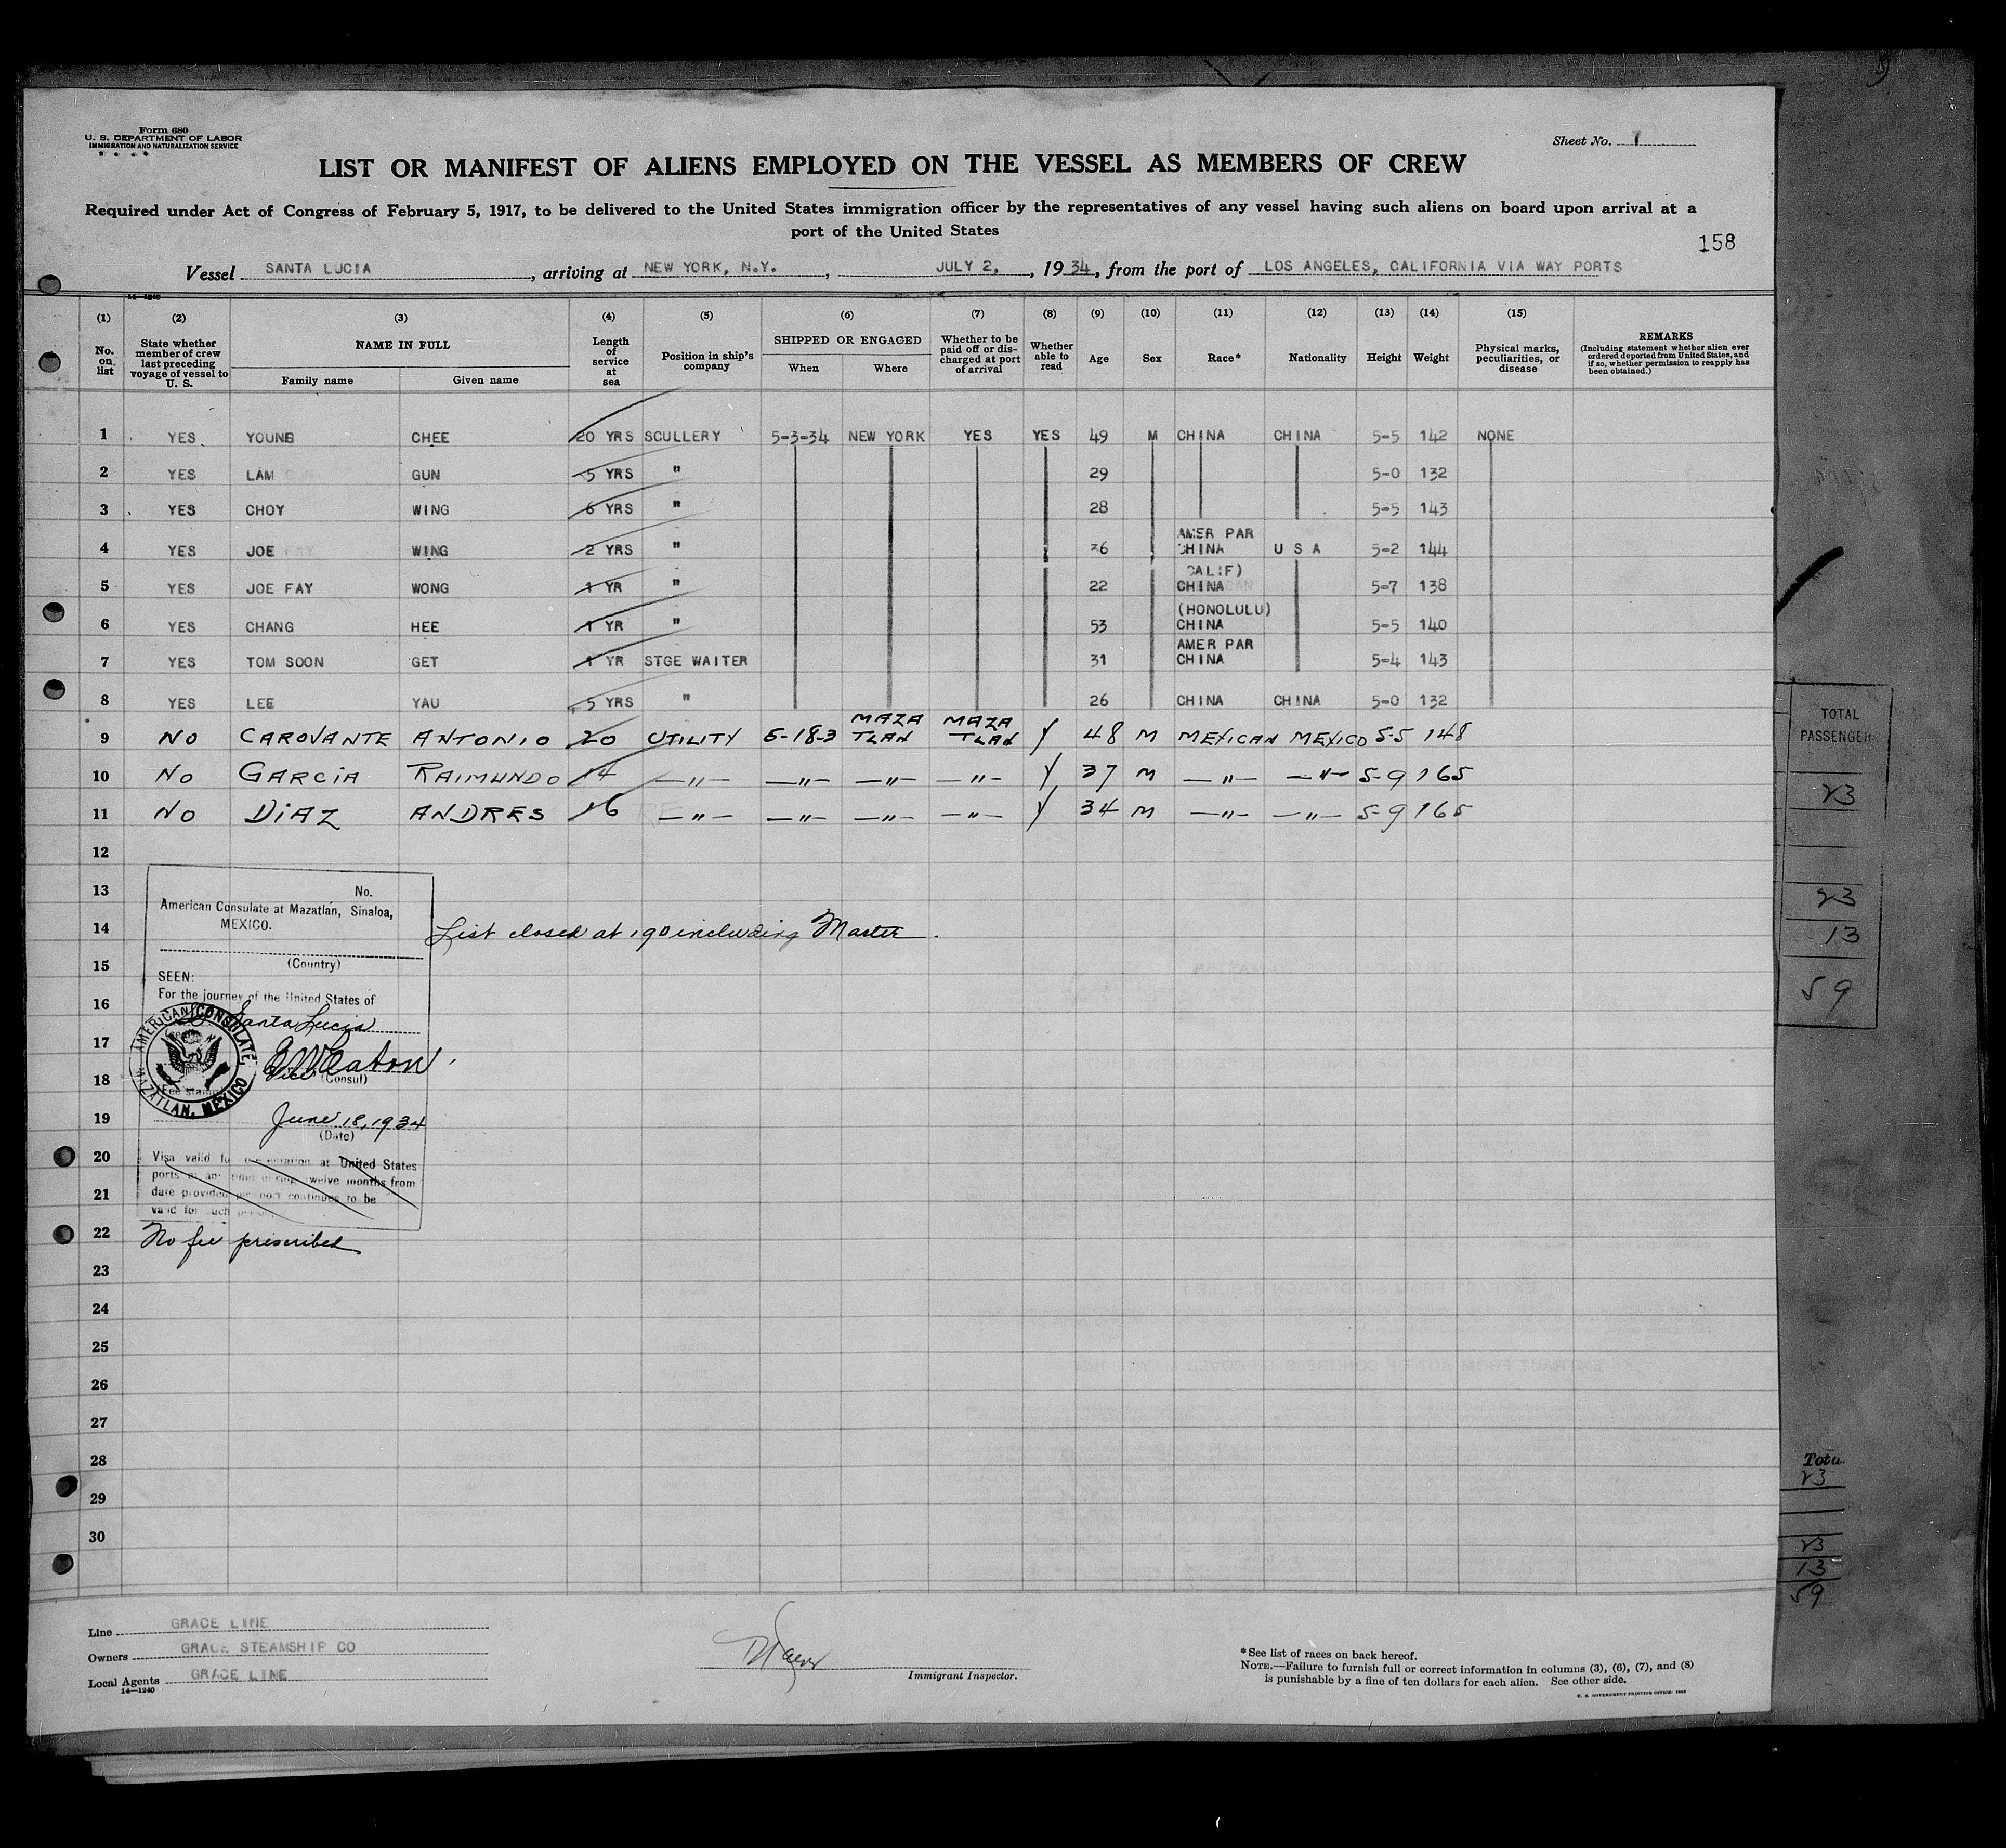 Form 680
U. S. DEPARTMENT OF LABOR
IMMIGRATION AND NATURALIZATION SERVICE
Sheet No. 1
LIST OR MANIFEST OF ALIENS EMPLOYED ON THE VESSEL AS MEMBERS OF CREW
Required under Act of Congress of February 5, 1917, to be delivered to the United States immigration officer by the representatives of any vessel having such aliens on board upon arrival at a
port of the United States
158
Vessel SANTA LUCIA, arriving at NEW YORK, N.Y., JULY 2, 1934, from the port of LOS ANGELES, CALIFORNIA VIA WAY PORTS
14—1240
(1) (2) (3) (4) (5) (6) (7) (8) (9) (10) (11) (12) (13) (14) (15)
No. on list
State whether member of crew last preceding voyage of vessel to U. S.
NAME IN FULL
Family name Given name
Length of service at sea
Position in ship's company
SHIPPED OR ENGAGED
When Where
Whether to be paid off or discharged at port of arrival
Whether able to read
Age
Sex
Race*
Nationality
Height
Weight
Physical marks, peculiarities, or disease
REMARKS
(Including statement whether alien ever ordered deported from United States, and if so, whether permission to reapply has been obtained.)
1 YES YOUNG CHEE 20 YRS SCULLERY 5-3-34 NEW YORK YES YES 49 M CHINA CHINA 5-5 142 NONE
2 YES LAM GUN 5 YRS " 29 5-0 132
3 YES CHOY WING 6 YRS " 28 5-5 143
AMER PAR
4 YES JOE WING 2 YRS " 36 CHINA U S A 5-2 144
CALIF)
5 YES JOE FAY WONG 1 YR " 22 CHINA 5-7 138
(HONOLULU)
6 YES CHANG HEE 1 YR " 53 CHINA 5-5 140
AMER PAR
7 YES TOM SOON GET 1 YR STGE WAITER 31 CHINA 5-4 143
8 YES LEE YAU 5 YRS " 26 CHINA CHINA 5-0 132
MAZA MAZA
9 NO CAROVANTE ANTONIO 20 UTILITY 6-18-3 TLAN TLAN Y 48 M MEXICAN MEXICO 5-5 148
10 NO GARCIA RAIMUNDO 14 —"— —"— —"— —"— Y 37 M —"— —"— 5-9 165
11 NO DIAZ ANDRES 16 —"— —"— —"— —"— Y 34 M —"— —"— 5-9 165
12
13
14
15
16
17
18
19
20
21
22
23
24
25
26
27
28
29
30
No.
American Consulate at Mazatlán, Sinaloa,
MEXICO.
(Country)
List closed at 190 including Master.
SEEN:
For the journey of the United States of
Santa Lucia
AMERICAN CONSULATE, MAZATLAN, MEXICO
Eaton
Vice (Consul)
June 18, 1934
(Date)
Visa valid for presentation at United States
ports at any time during twelve months from
date provided passport continues to be
valid for such period.
No fee prescribed
TOTAL
PASSENGER
23
23
13
59
Total
23
23
13
59
Line GRACE LINE
Owners GRACE STEAMSHIP CO
Local Agents GRACE LINE
14—1240
Immigrant Inspector.
*See list of races on back hereof.
NOTE.—Failure to furnish full or correct information in columns (3), (6), (7), and (8)
is punishable by a fine of ten dollars for each alien. See other side.